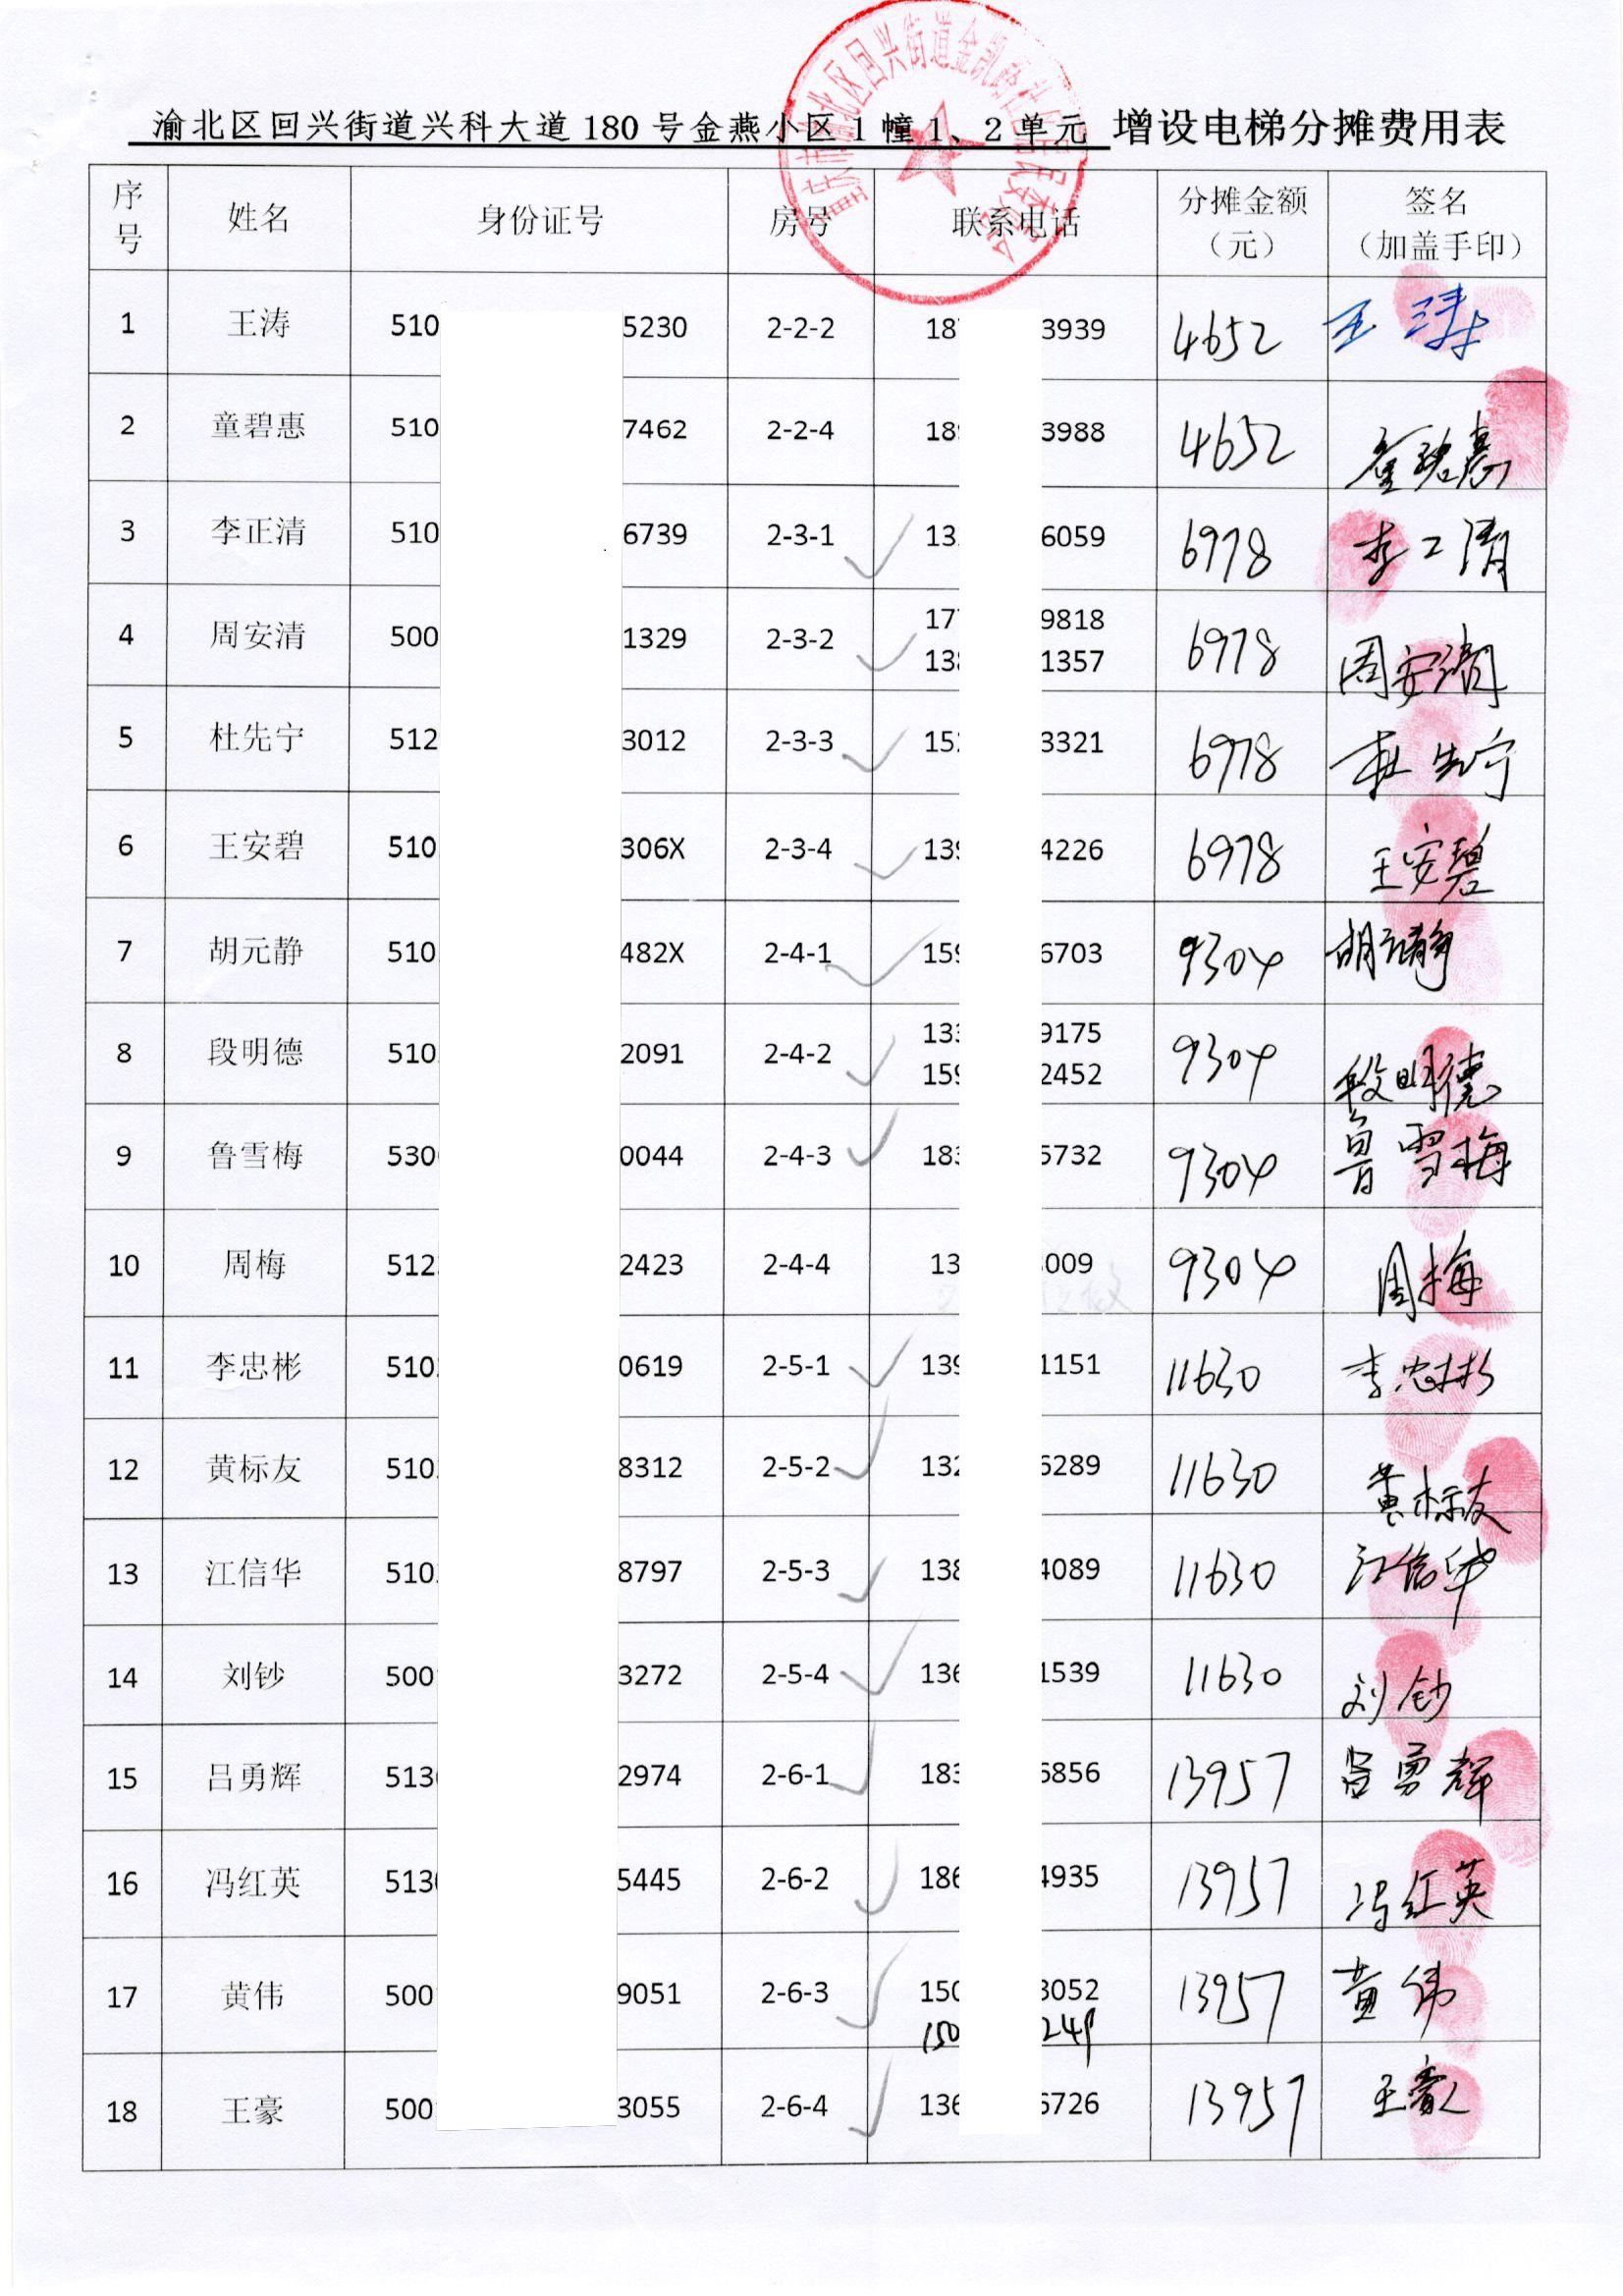 渝北区回兴街道兴科大道180号金燕小区1幢1、2单元 增设电梯分摊费用表
序号 姓名 身份证号 房号 联系电话 分摊金额（元） 签名（加盖手印）
1 王涛 510 5230 2-2-2 18 3939 4652 王涛
2 童碧惠 510 7462 2-2-4 18 3988 4652 童碧惠
3 李正清 510 6739 2-3-1 13 6059 6978 李正清
4 周安清 500 1329 2-3-2 17 9818 6978 周安清
13 1357
5 杜先宁 512 3012 2-3-3 15 3321 6978 杜先宁
6 王安碧 510 306X 2-3-4 139 4226 6978 王安碧
7 胡元静 510 482X 2-4-1 159 6703 9304 胡元静
8 段明德 510 2091 2-4-2 133 9175 9304 段明德
159 2452
9 鲁雪梅 530 0044 2-4-3 183 5732 9304 鲁雪梅
10 周梅 512 2423 2-4-4 13 009 9304 周梅
11 李忠彬 510 0619 2-5-1 139 1151 11630 李忠彬
12 黄标友 510 8312 2-5-2 132 6289 11630 黄标友
13 江信华 510 8797 2-5-3 138 4089 11630 江信华
14 刘钞 500 3272 2-5-4 136 1539 11630 刘钞
15 吕勇辉 513 2974 2-6-1 183 6856 13957 吕勇辉
16 冯红英 513 5445 2-6-2 186 4935 13957 冯红英
17 黄伟 500 9051 2-6-3 150 3052 13957 黄伟
150 249
18 王豪 500 3055 2-6-4 136 6726 13957 王豪